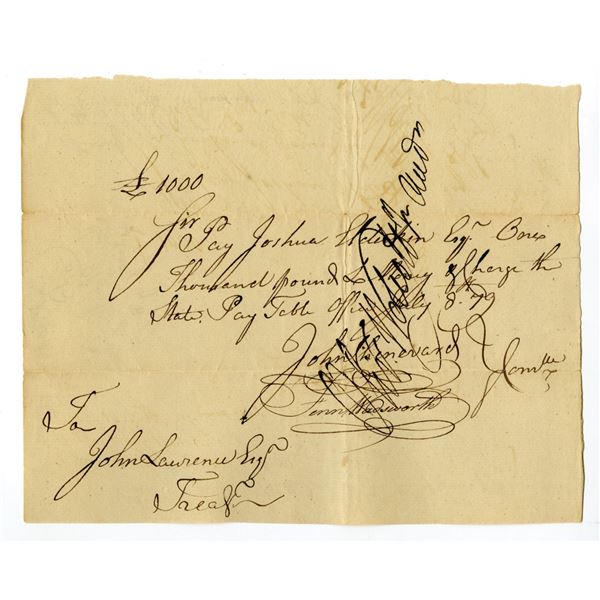 £1000
Sir
Pay Joshua Elderkin Esqr. One
Thousand pounds L Money & Charge the
State. Pay Table Office July 8th 79
John Chenevard
Fenn Wadsworth
Comtte
To
John Lawrence Esqr
Treasr